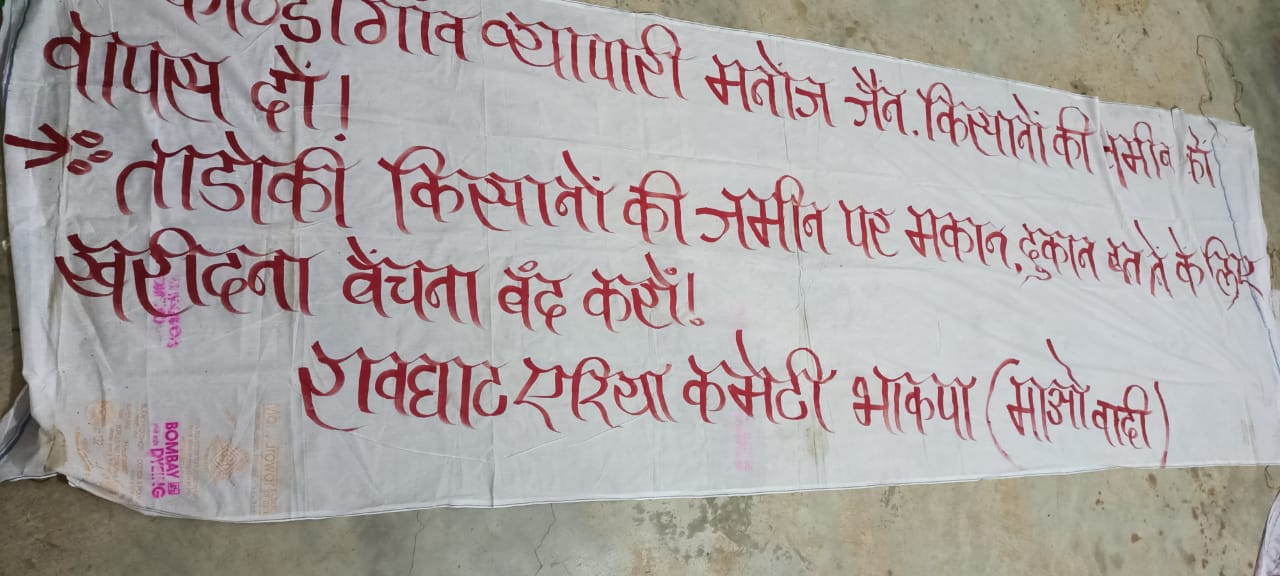 कोण्डागांव व्यापारी मनोज जैंन. किसानों की जमीन को
वापस दों!
ताडोकी किसानों की जमीन पर मकान, दुकान के लिए
खरीदना बेंचना बँद करों!
रावघाट एरिया कमेटी भाकपा (माओवादी)
BOMBAY
DYEING